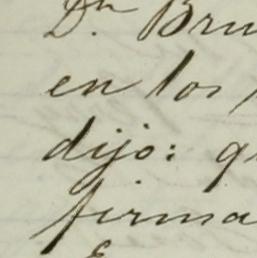 Dn. Bru
en los
dijo: q
firma